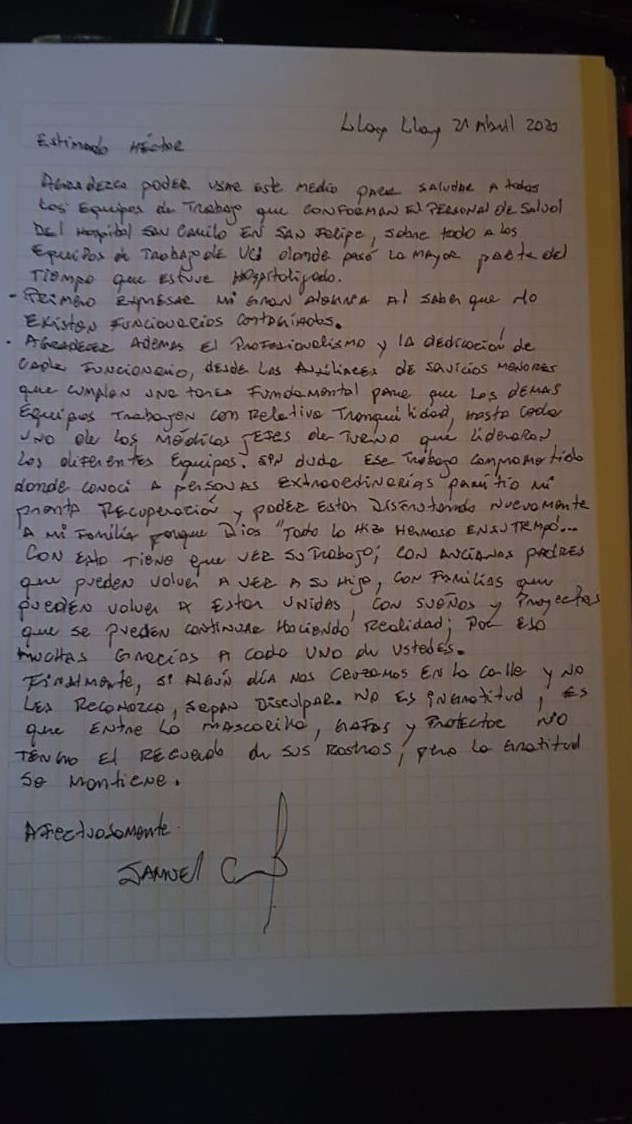 Llay Llay 21 Abril 2020
Estimado Héctor
Agradezco poder usar este medio para saludar a todos
los Equipos de Trabajo que conforman el personal de Salud
Del Hospital San Camilo en San Felipe, sobre todo a los
Equipos de Trabajo de UCI donde pasé la mayor parte del
tiempo que estuve Hospitalizado.
- Primero expresar mi gran alegría al saber que no
existen funcionarios contagiados.
- Agradecer además el Profesionalismo y la dedicación de
cada funcionario, desde las Auxiliares de Servicios menores
que cumplen una tarea fundamental para que los demás
Equipos trabajen con relativa tranquilidad, hasta cada
uno de los Médicos Jefes de Turno que lideraron
los diferentes Equipos. Sin duda ese trabajo comprometido
donde conocí a personas extraordinarias permitió mi
pronta Recuperación y poder estar disfrutando nuevamente
a mi familia porque Dios "Todo lo hizo hermoso en su tiempo"...
Con esto tiene que ver su trabajo; con ancianos padres
que pueden volver a ver a su hijo, con familias que
pueden volver a estar unidas, con sueños y proyectos
que se pueden continuar haciendo realidad; por eso
muchas gracias a cada uno de ustedes.
Finalmente, si algún día nos cruzamos en la calle y no
les reconozco, sepan disculpar. No es ingratitud, es
que entre la mascarilla, gafas y protector no
tengo el recuerdo de sus rostros, pero la gratitud
se mantiene.
Afectuosamente
Samuel